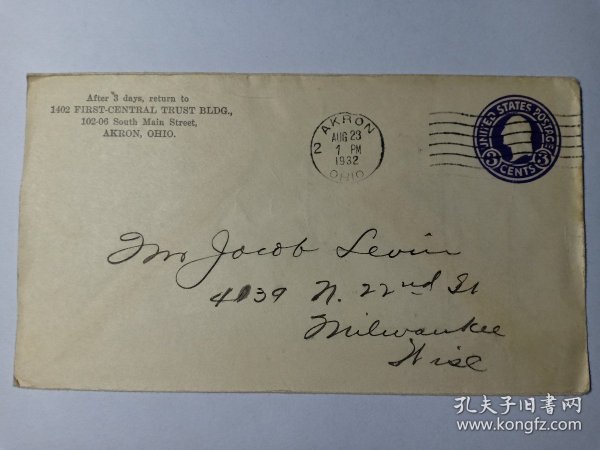 After 3 days, return to
1402 FIRST-CENTRAL TRUST BLDG.,
102-06 South Main Street,
AKRON, OHIO.
AKRON
2
AUG 23
1 PM
1932
OHIO
UNITED STATES POSTAGE
3 CENTS 3
Mr Jacob Levin
4139 N. 22nd St
Milwaukee
Wisc
孔夫子旧书网
www.kongfz.com